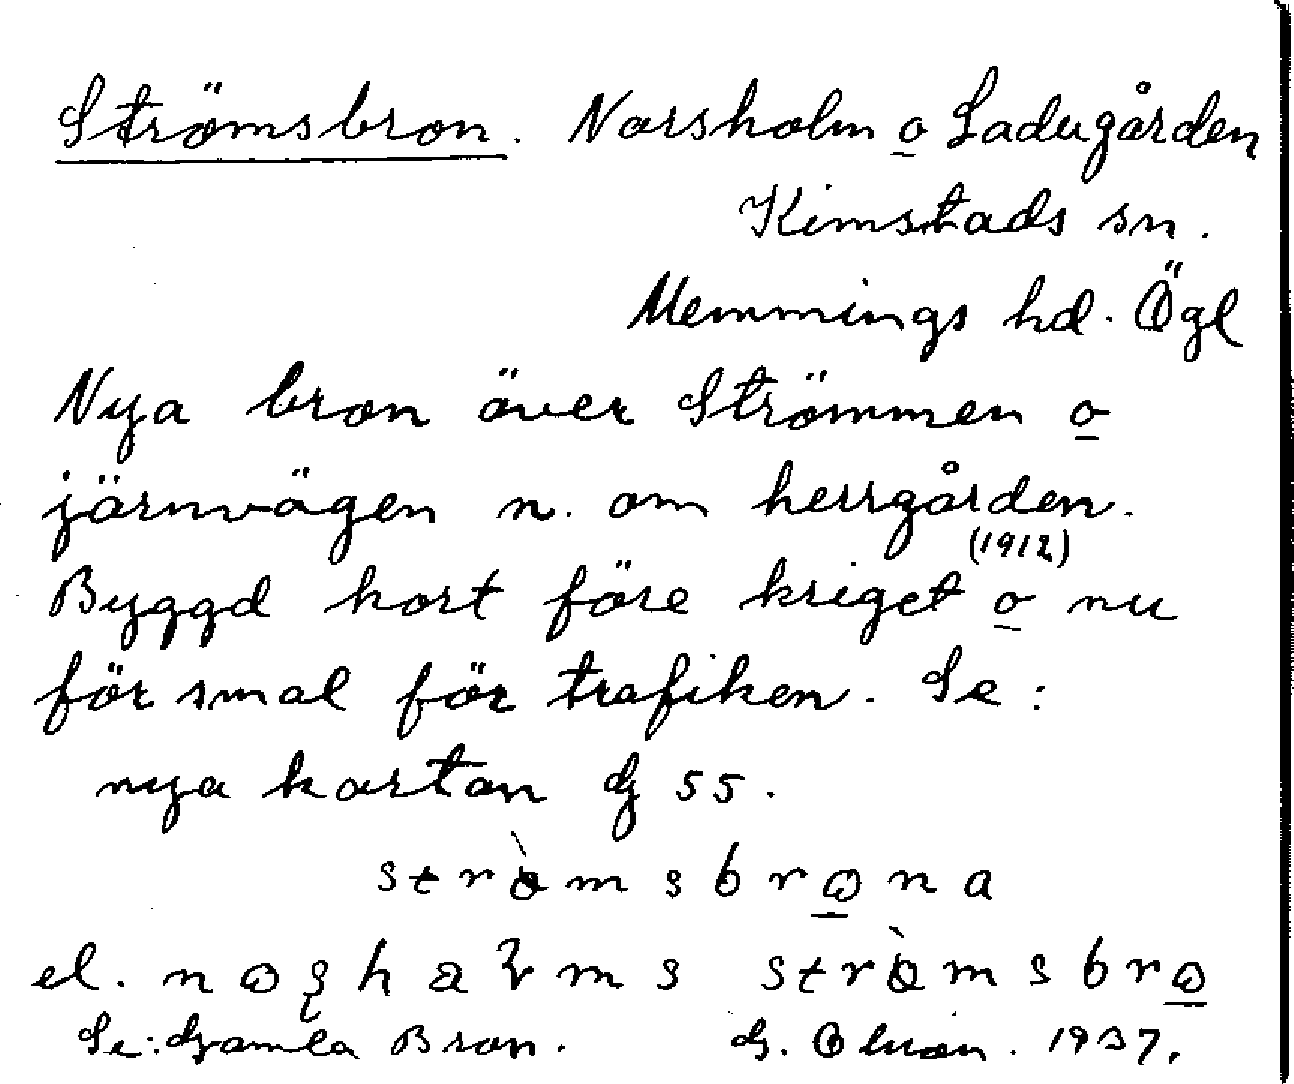 Strömsbron. Norsholm o Ladugården
Kimstads sn.
Memmings hd. Ögl
Nya bron över Strömmen o
järnvägen n. om herrgården.
(1912)
Byggd kort före kriget o nu
för smal för trafiken. Se:
nya kartan G 55.
el.
Se: Gamla Bron. G. 1937.